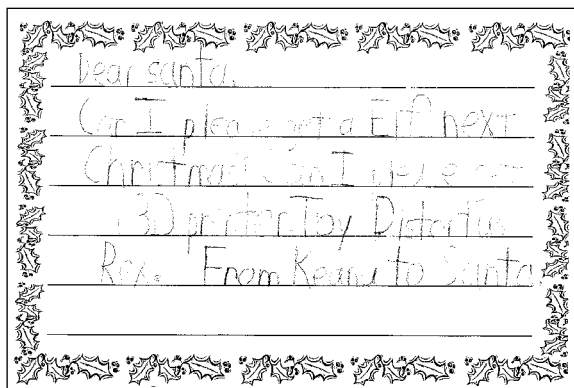 Dear santa.
Can I please get a Elf next
Chritmas Can I
3D printer Toy Distortus
Rex. From Keanu to Santa.